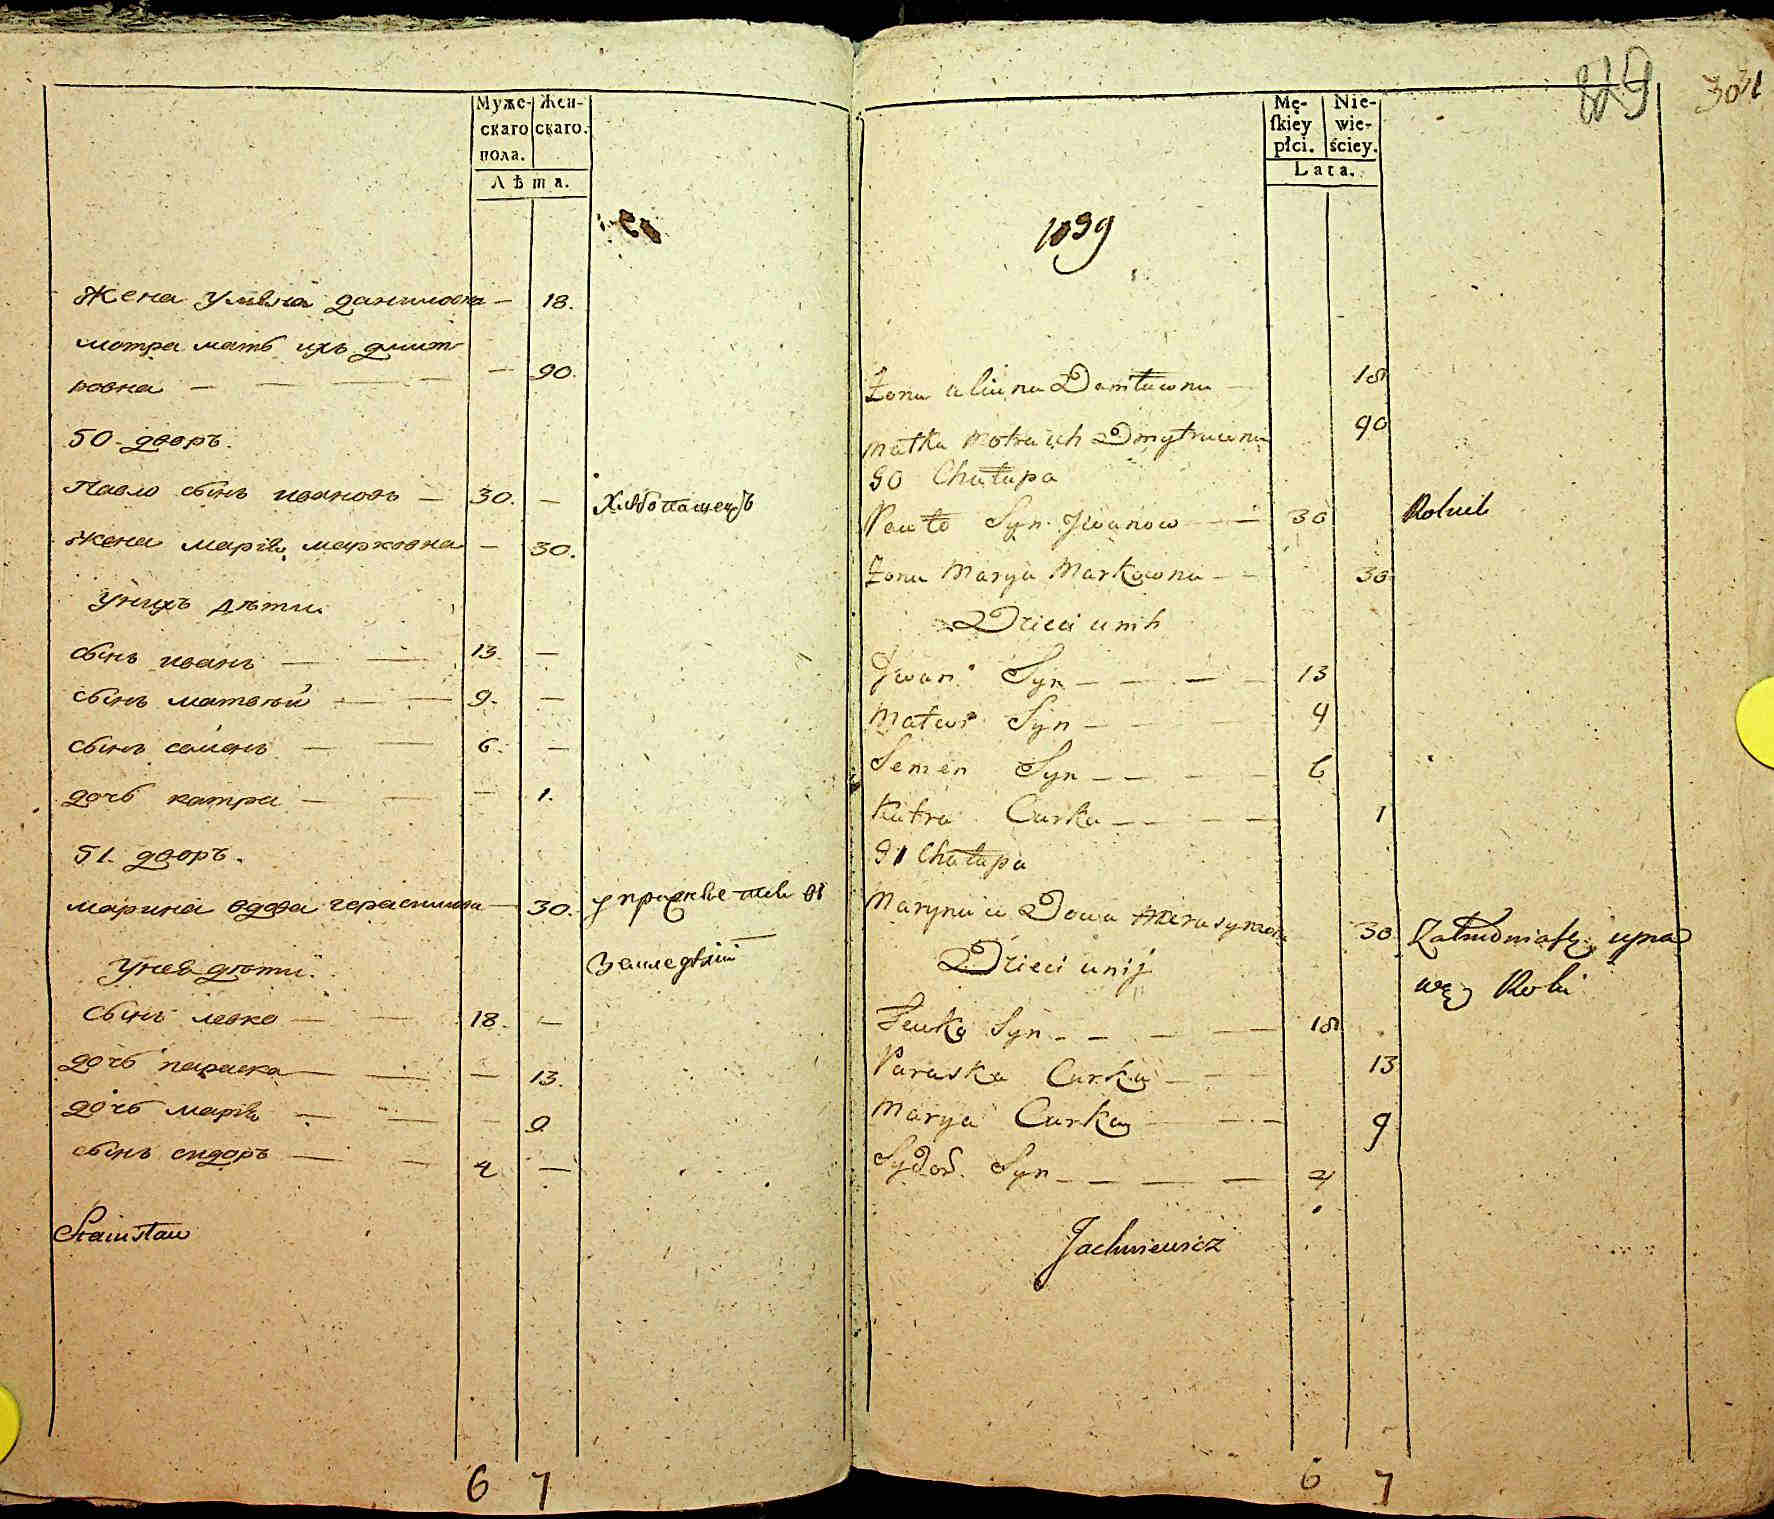 Муже-
скаго
пола.
Жен-
скаго.
Лѣта.
жена улияна даниловна — 18.
мотра мать ихъ дмит-
ровна — — — — — 90.
50. дворъ.
Павло сынъ ивановъ — 30. — Хлѣбопашецъ
жена марія марковна — 30.
у нихъ дѣти
сынъ иванъ — — 13. —
сынъ матвѣй — — 9. —
сынъ семенъ — — 6. —
дочь катра — — — 1.
51. дворъ.
марина вдова герасимова — 30. упражняется въ
земледѣлїи
у нея дѣти.
сынъ левко — — 18. —
дочь параска — — — 13.
дочь марія — — — 9
сынъ сидоръ — — 4 —
Stanisław
6 7
829
3031
Mę-
ſkiey
płci.
Nie-
wie-
ściey.
Lata.
1039
Żona uliana Daniłowna — 18
Matka Motra ich Dmytrowna 90
50 Chałupa
Pawło Syn Jwanow — — 30 Rolnik
Żona Marya Markowna — — 30
Dzieci unih
Jwan Syn — — — — 13
Matwi Syn — — — — 9
Semen Syn — — — — 6
Katra Curka — — — — 1
51 Chałupa
Maryna Dowa Herasymowa 30 Zatrudnia się upra
wą Roli
Dzieci unij
Lewko Syn — — — — 18
Paraska Curka — — — 13
Marya Curka — — — 9
Sydor Syn — — — — 4
Jachniewicz
6 7